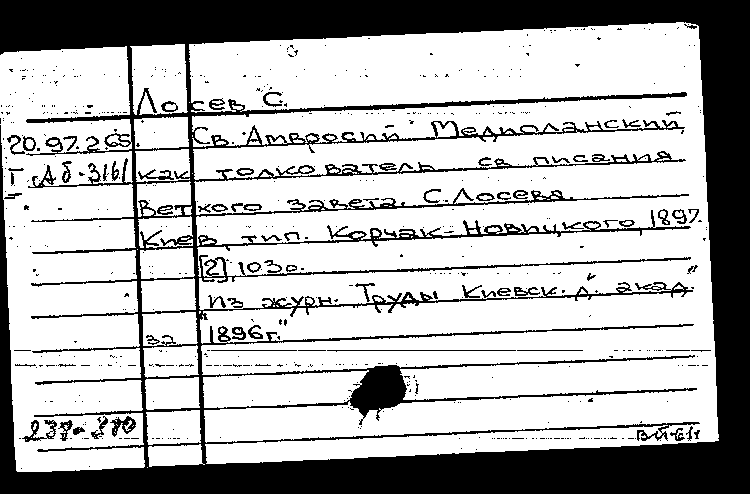 Лосев, С.
20.97.265. Св. Амвросий Медиоланский,
Г Аб-3161 как толкователь св писания
Ветхого завета. С. Лосева.
Киев, тип. Корчак-Новицкого, 1897.
[2], 103 с.
"Из журн. Труды Киевск. д. акад."
32 "1896г."